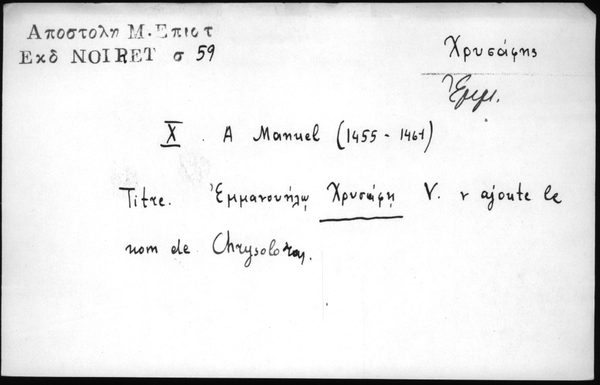 Αποστολη Μ. Επιστ
Εκδ NOIRET σ 59
Χρυσάφης
Ἐμμ.
X . A Manuel (1455 - 1461)
Titre. Ἐμμανουήλῳ Χρυσάφῃ V. r ajoute le
nom de Chrysoloras.